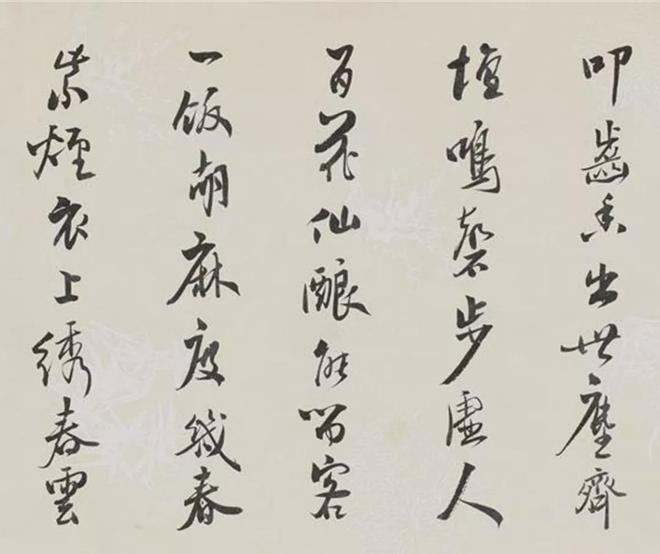 叩齒香出世塵齋
壇鳴磬步虛人
百花仙釀能留客
一飯胡麻度幾春
紫煙衣上綉春雲